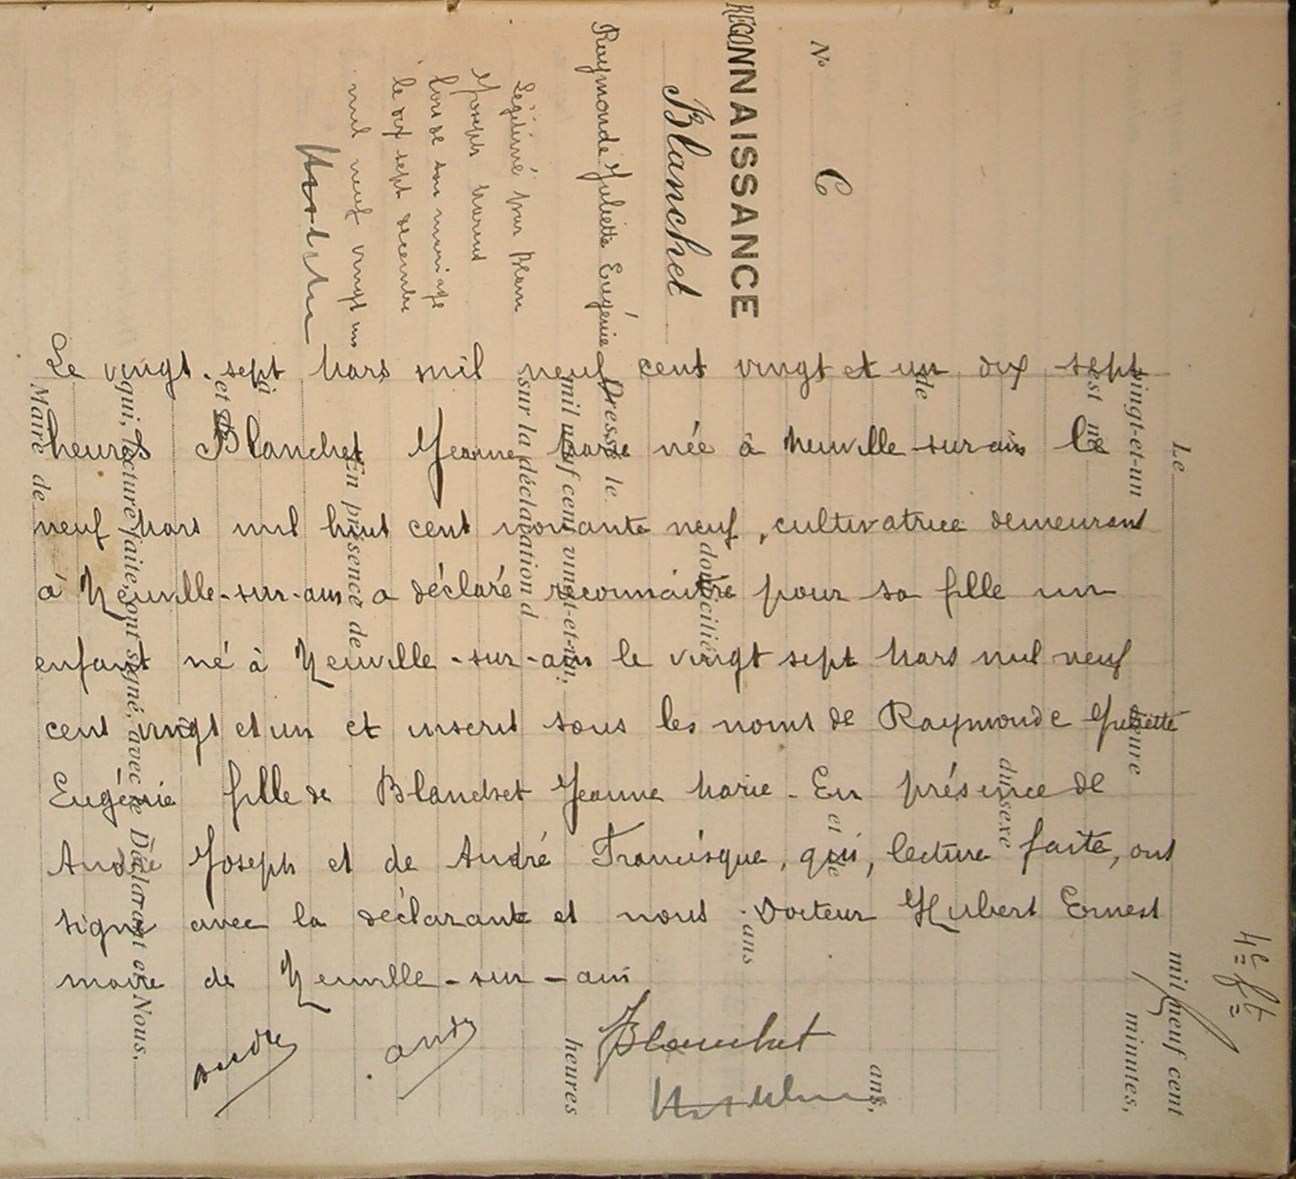 N° C
RECONNAISSANCE
Blanchet
Raymonde Juliette Eugénie
Légitimé par Blanc
Joseph Marius
lors de son mariage
le dix sept décembre
mil neuf vingt un
Le vingt-sept Mars mil neuf cent vingt et un dix sept
heures Blanchet Jeanne Marie née à Neuville-sur-ain le
neuf Mars mil huit cent nonante neuf, cultivatrice demeurant
à Neuville-sur-ain a déclaré reconnaître pour sa fille un
enfant né à Neuville-sur-ain le vingt sept Mars mil neuf
cent vingt et un et inscrit sous les noms de Raymonde Juliette
Eugénie fille de Blanchet Jeanne Marie - En présence de
André Joseph et de André Francisque, qui, lecture faite, ont
signé avec la déclarante et nous Docteur Hubert Ernest
maire de Neuville-sur-ain
andré andré Blanchet
Le mil neuf cent
vingt-et-un heure minutes,
est né
du sexe
de
ans,
et de
ans
domicilié
Dressé le
mil neuf cent vingt-et-un, heures
sur la déclaration d
En présence de
à
et de
qui, lecture faite, ont signé, avec le Déclarant et Nous,
Maire de
4e ft